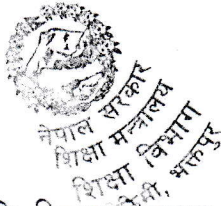 नेपाल सरकार
शिक्षा मन्त्रालय
शिक्षा विभाग
भक्तपुर